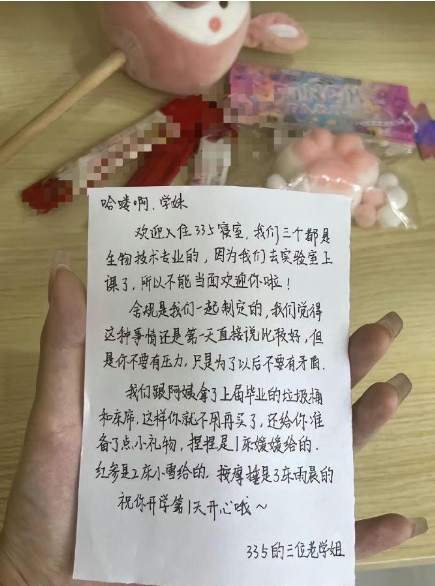 哈喽啊，学妹
欢迎入住335寝室，我们三个都是
生物技术专业的，因为我们去实验室上
课了，所以不能当面欢迎你啦！
舍规是我们一起制定的，我们觉得
这种事情还是第一天直接说比较好，但
是你不要有压力，只是为了以后不要有矛盾.
我们跟阿姨拿了上届毕业的垃圾桶
和床帘，这样你就不用再买了，还给你准
备了点小礼物，捏捏是1床媛媛给的.
红参是2床小雪给的，按摩锤是3床雨晨的
祝你开学第1天开心哦～
335的三位老学姐